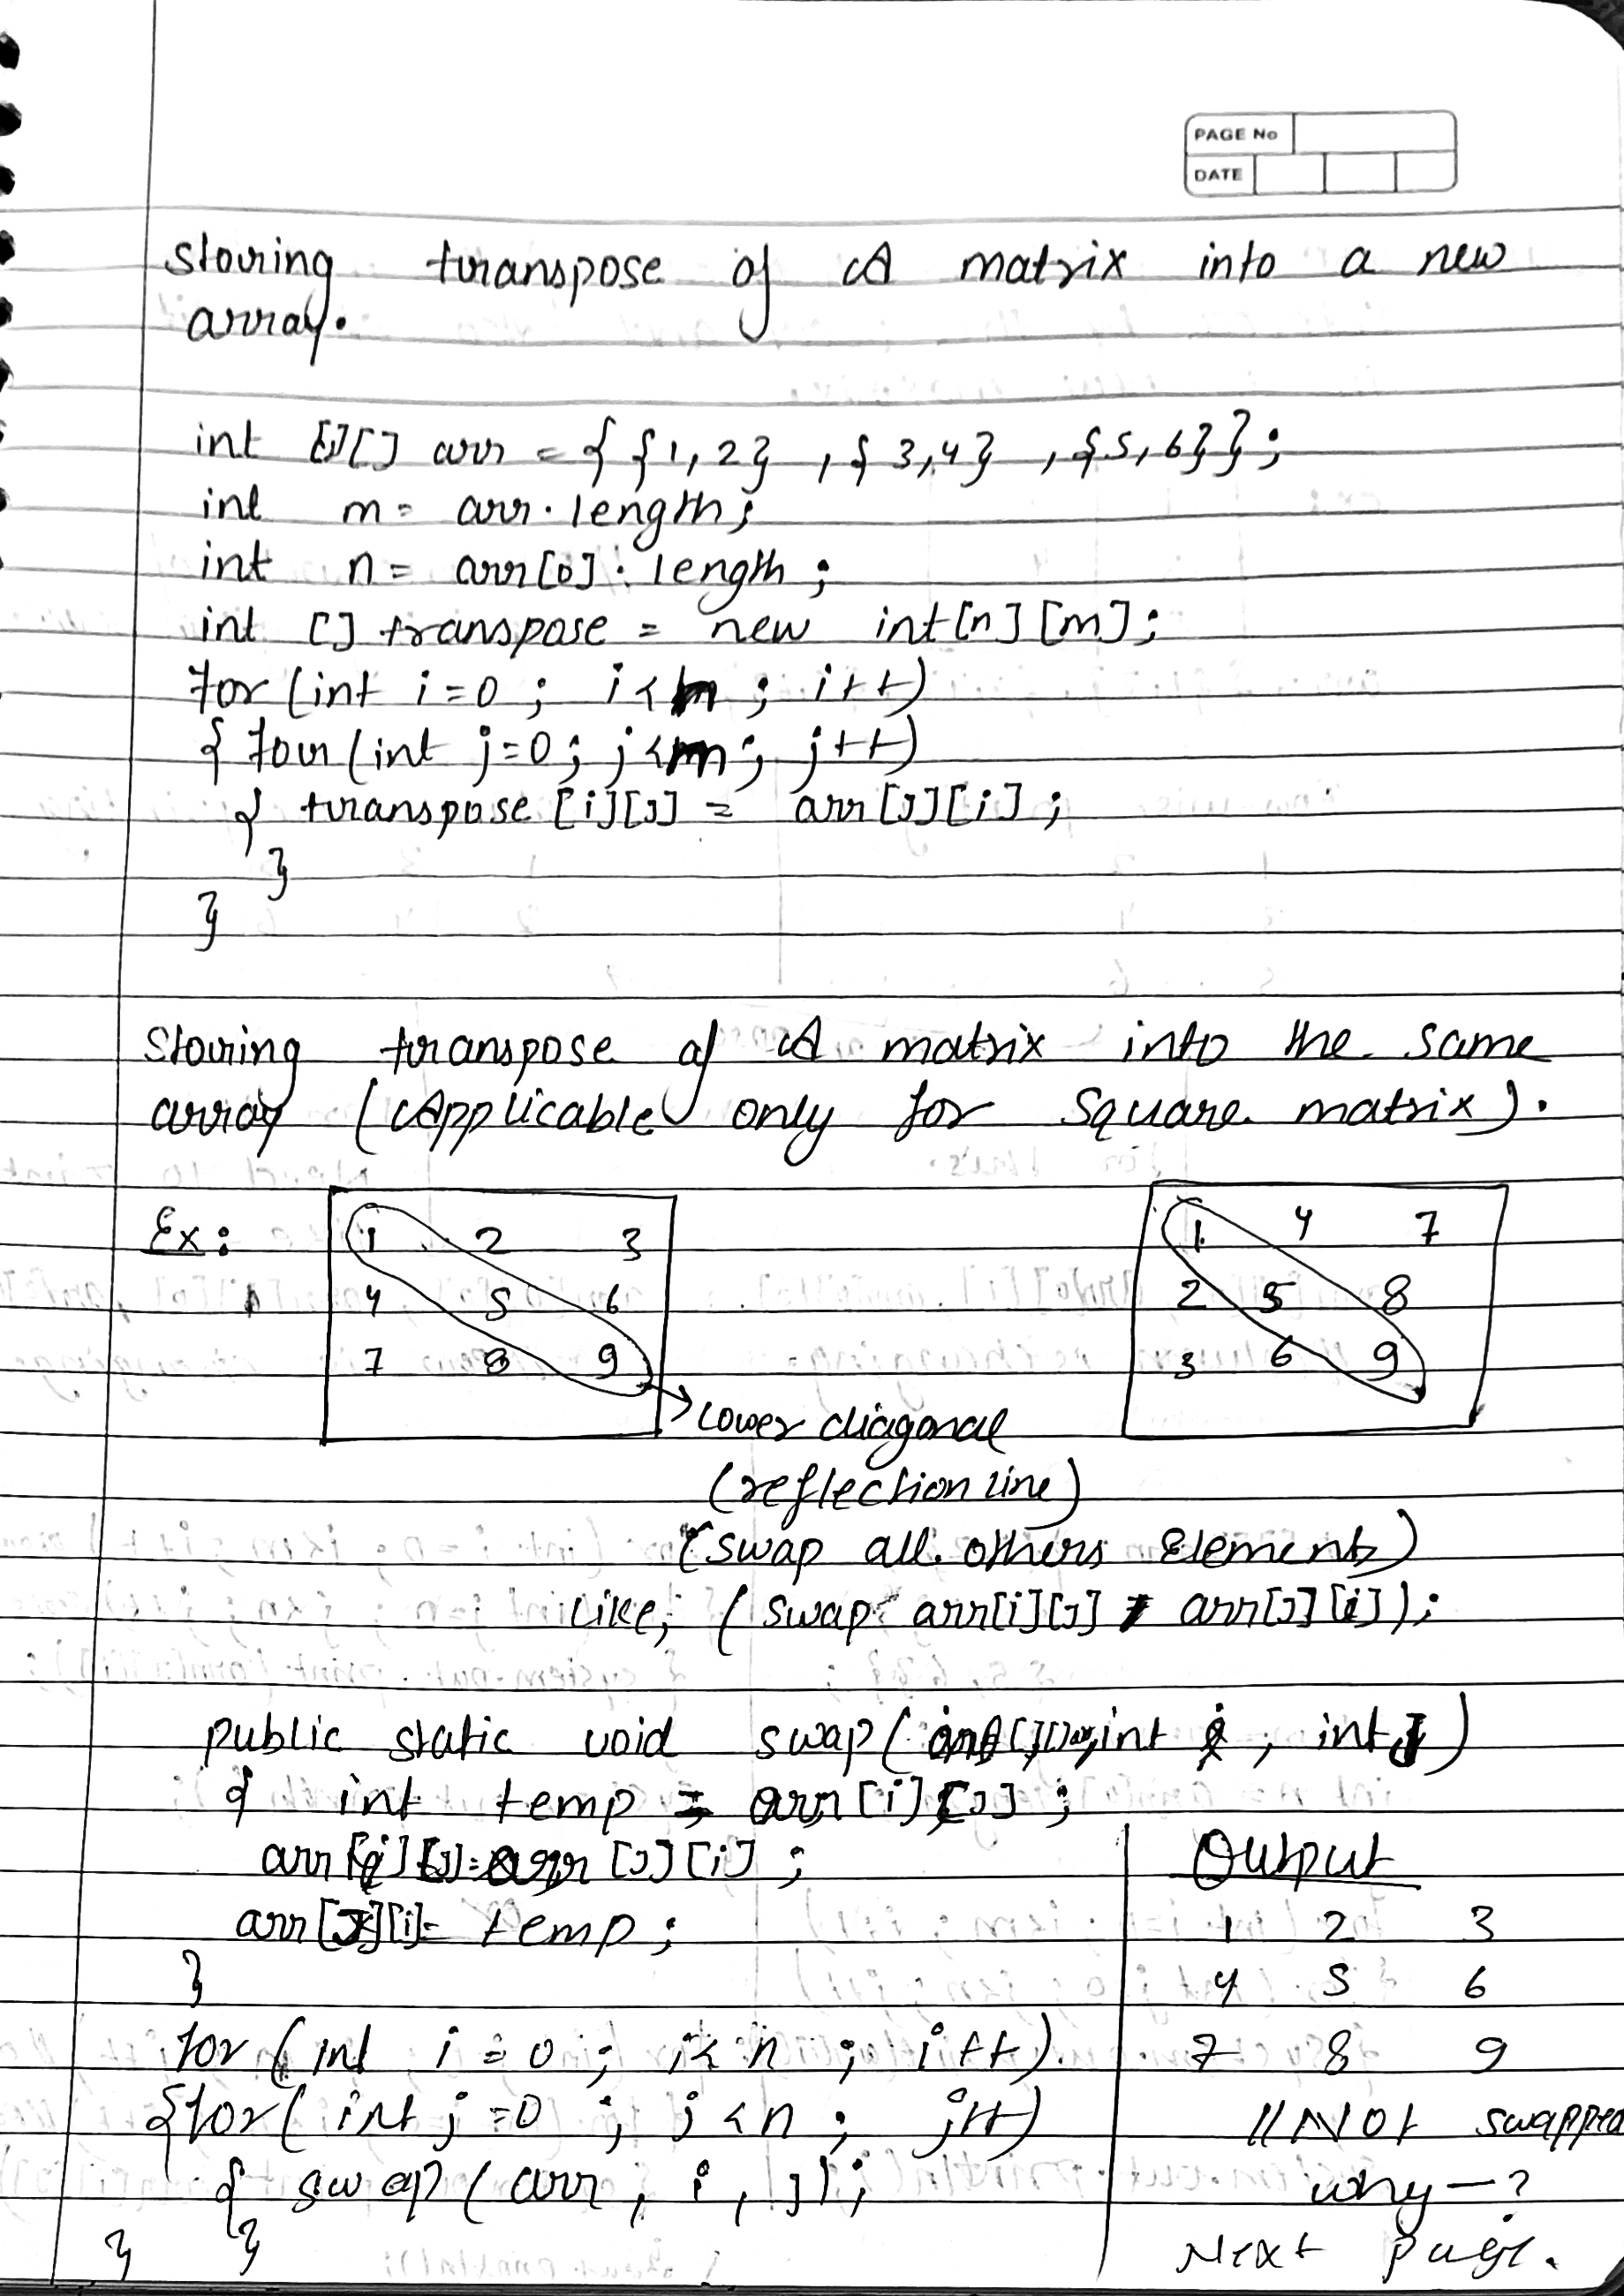 PAGE No
DATE
Storing transpose of A matrix into a new
array.
int [][] arr = { {1,2} , {3,4} , {5,6}};
int m= arr.length;
int n= arr[0].length;
int [] transpose = new int[n][m];
for (int i=0; i<m; i++)
{ for (int j=0; j<m; j++)
{ transpose [i][j] = arr[j][i];
}
}
Storing transpose of A matrix into the same
array (Applicable only for Square matrix).
Ex:
1 2 3
4 5 6
7 8 9
1 4 7
2 5 8
3 6 9
Lower diagonal
(reflection line)
(swap all others Elements)
Like, (swap arr[i][j] arr[j][i]);
public static void swap( int i, int j)
{ int temp = arr[i][j];
arr[i][j]=arr[j][i];
arr[j][i]= temp;
}
for (int i=0; i<n; i++)
{for(int j=0; j<n; j++)
{ swap(arr, i, j);
} }
Output
1 2 3
4 5 6
7 8 9
//Not swapped
why-?
Next page.